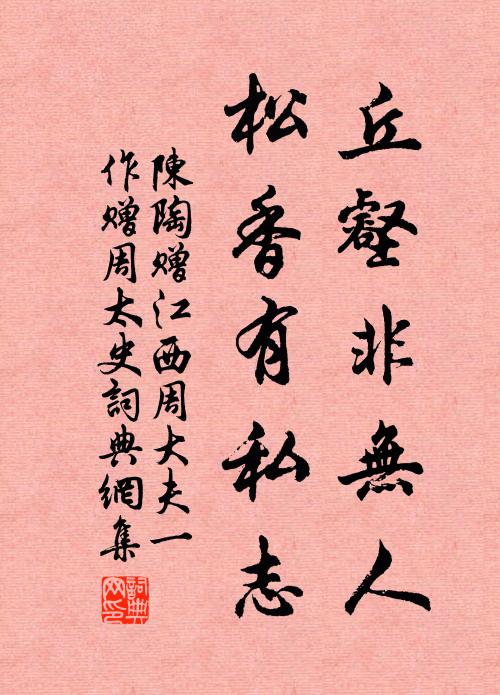 丘壑非無人
松香有私志
陳陶贈江西周大夫一
作贈周太史詞典網集
詞典網印